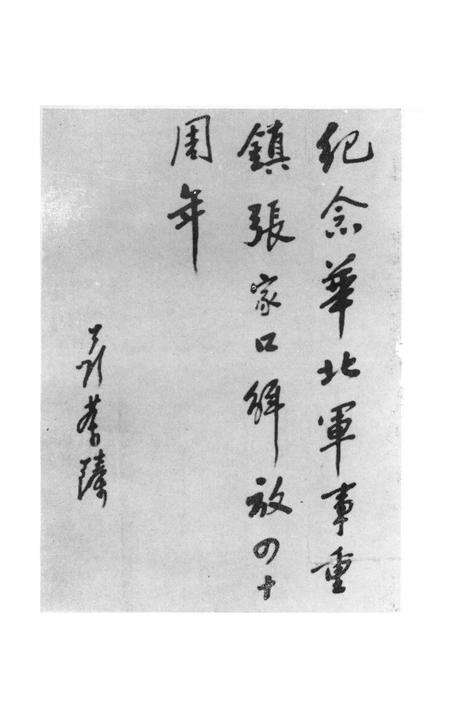 紀念華北軍事重
鎮張家口解放四十
周年
聂荣臻